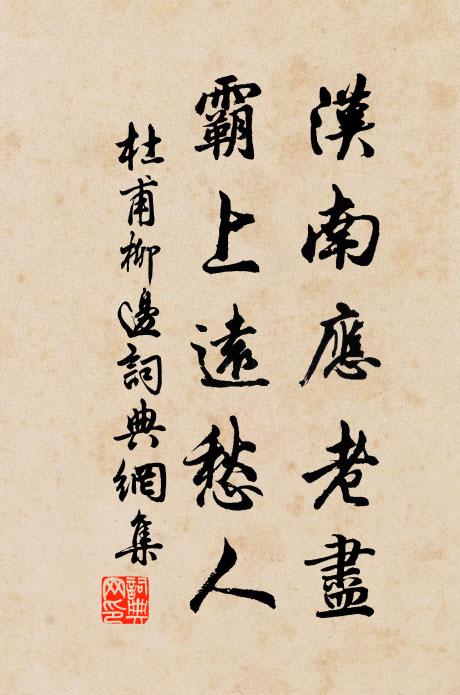 漢南應老盡
霸上遠愁人
杜甫柳邊詞典網集
詞典
网印